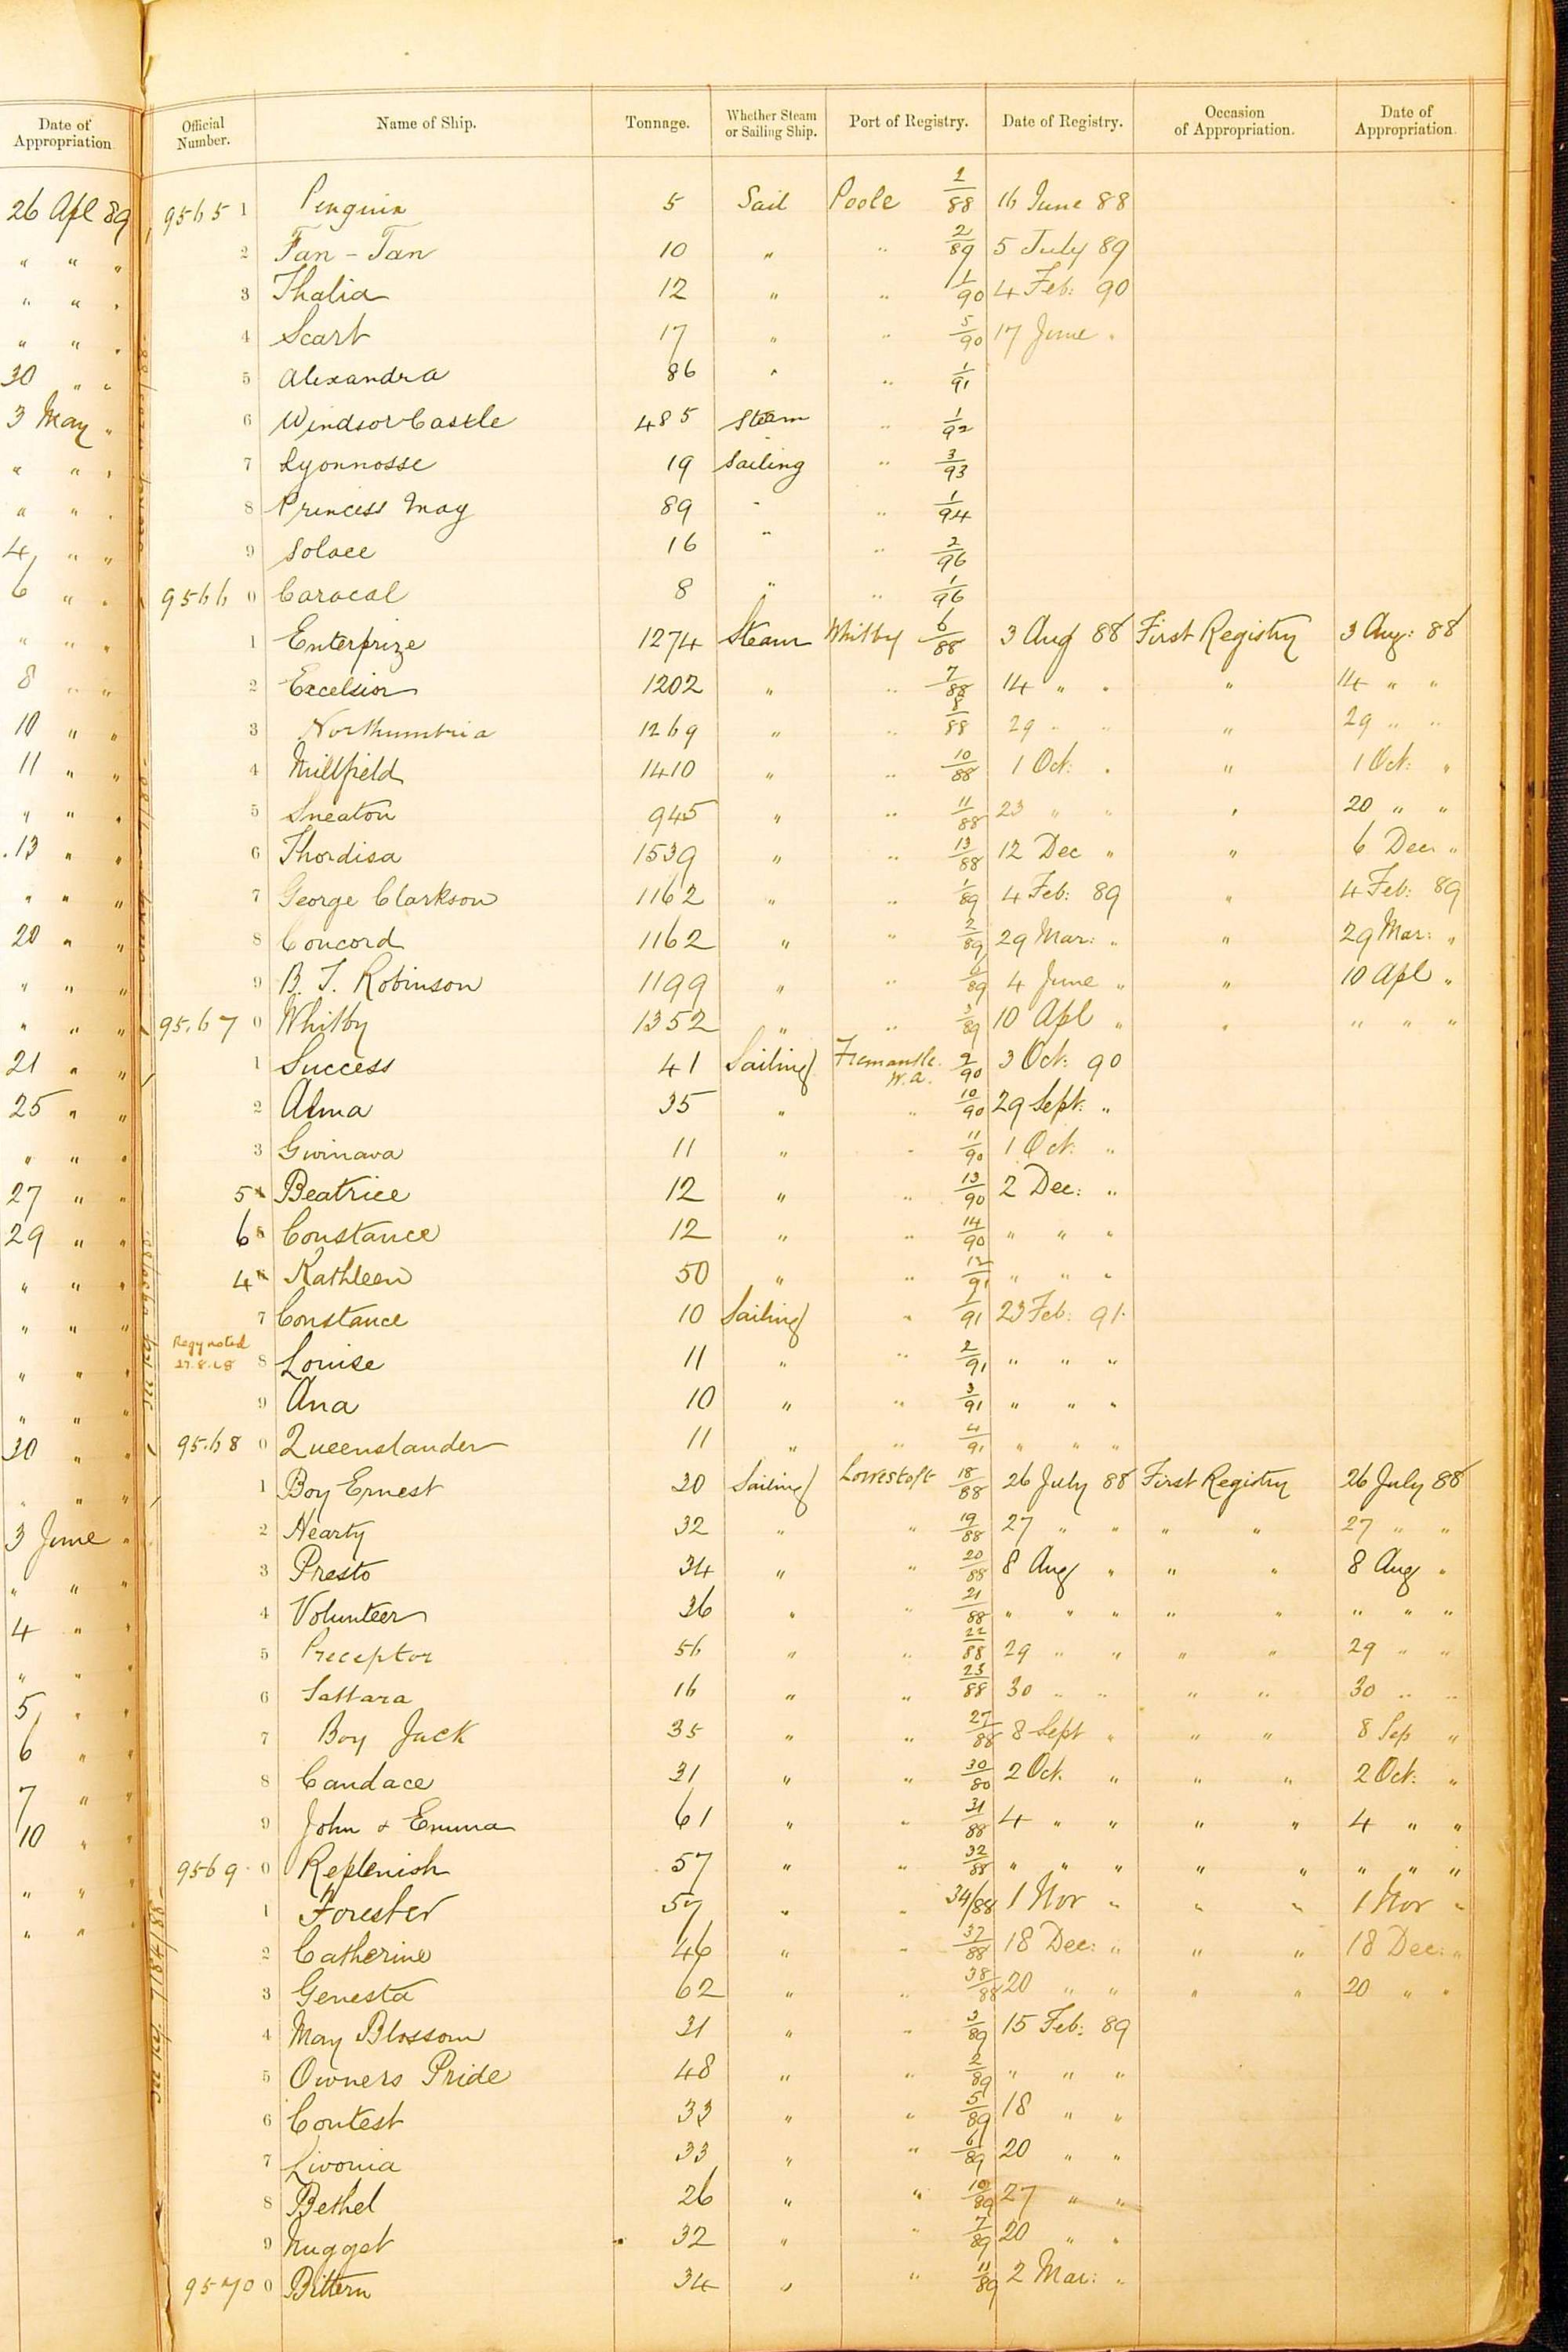 Date of Appropriation
Official Number. Name of Ship. Tonnage. Whether Steam or Sailing Ship. Port of Registry. Date of Registry. Occasion of Appropriation. Date of Appropriation.
26 Apl 89
" " "
" " "
" " "
30 " "
3 May "
" " "
" " "
4 " "
6 " "
" " "
8 " "
10 " "
11 " "
" " "
13 " "
" " "
20 " "
" " "
" " "
21 " "
25 " "
" " "
27 " "
29 " "
" " "
" " "
" " "
" " "
30 " "
" " "
3 June "
" " "
4 " "
" " "
5 " "
6 " "
7 " "
10 " "
" " "
" "
9565 1 Penguin 5 Sail Poole 2/88 16 June 88
2 Fan-Tan 10 " " 2/89 5 July 89
3 Thalia 12 " " 1/90 4 Feb: 90
4 Scart 17 " " 5/90 17 June "
5 Alexandra 86 " " 1/91
6 Windsor Castle 485 Steam " 1/92
7 Lyonnosse 19 Sailing " 3/93
8 Princess May 89 " " 1/94
9 Solace 16 " " 2/96
9566 0 Caracal 8 " " 1/96
1 Enterprize 1274 Steam Whitby 6/88 3 Aug 88 First Registry 3 Aug: 88
2 Excelsior 1202 " " 7/88 14 " " " 14 " "
3 Northumbria 1269 " " 8/88 29 " " " 29 " "
4 Millfield 1410 " " 10/88 1 Oct: " " 1 Oct: "
5 Sneaton 945 " " 11/88 23 " " " 20 " "
6 Thordisa 1539 " " 13/88 12 Dec " " 6 Dec: "
7 George Clarkson 1162 " " 1/89 4 Feb: 89 " 4 Feb: 89
8 Concord 1162 " " 2/89 29 Mar: " " 29 Mar: "
9 B. T. Robinson 1199 " " 6/89 4 June " " 10 Apl "
95.67 0 Whitby 1352 " " 3/89 10 Apl " " " " "
1 Success 41 Sailing Fremantle W.A. 9/90 3 Oct: 90
2 Alma 35 " " 10/90 29 Sept: "
3 Gwinava 11 " " 11/90 1 Oct: "
5 4 Beatrice 12 " " 13/90 2 Dec: "
6 5 Constance 12 " " 14/90 " " "
4 6 Kathleen 50 " " 12/91 " " "
7 Constance 10 Sailing " 1/91 23 Feb: 91
Regy noted
27.8.68
8 Louise 11 " " 2/91 " " "
9 Ana 10 " " 3/91 " " "
95.68 0 Queenslander 11 " " 4/91 " " "
1 Boy Ernest 30 Sailing Lowestoft 18/88 26 July 88 First Registry 26 July 88
2 Hearty 32 " " 19/88 27 " " " " 27 " "
3 Presto 34 " " 20/88 8 Aug " " " 8 Aug "
4 Volunteer 36 " " 21/88 " " " " " " " "
5 Preceptor 56 " " 22/88 29 " " " " 29 " "
6 Sattara 16 " " 23/88 30 " " " " 30 " "
7 Boy Jack 35 " " 27/88 8 Sept " " " 8 Sep "
8 Candace 31 " " 30/80 2 Oct. " " " 2 Oct: "
9 John & Emma 61 " " 31/88 4 " " " " 4 " "
9569 0 Replenish 57 " " 32/88 " " " " " " " "
1 Forester 57 " " 34/88 1 Nov " " " 1 Nov "
2 Catherine 46 " " 37/88 18 Dec: " " " 18 Dec: "
3 Genesta 62 " " 38/88 20 " " " " 20 " "
4 May Blossom 31 " " 3/89 15 Feb: 89
5 Owners Pride 48 " " 2/89 " " "
6 Contest 33 " " 5/89 18 " "
7 Livonia 33 " " 6/89 20 " "
8 Bethel 26 " " 10/89 27 " "
9 Nugget 32 " " 7/89 20 " "
9570 0 Bittern 34 " " 11/89 2 Mar: "